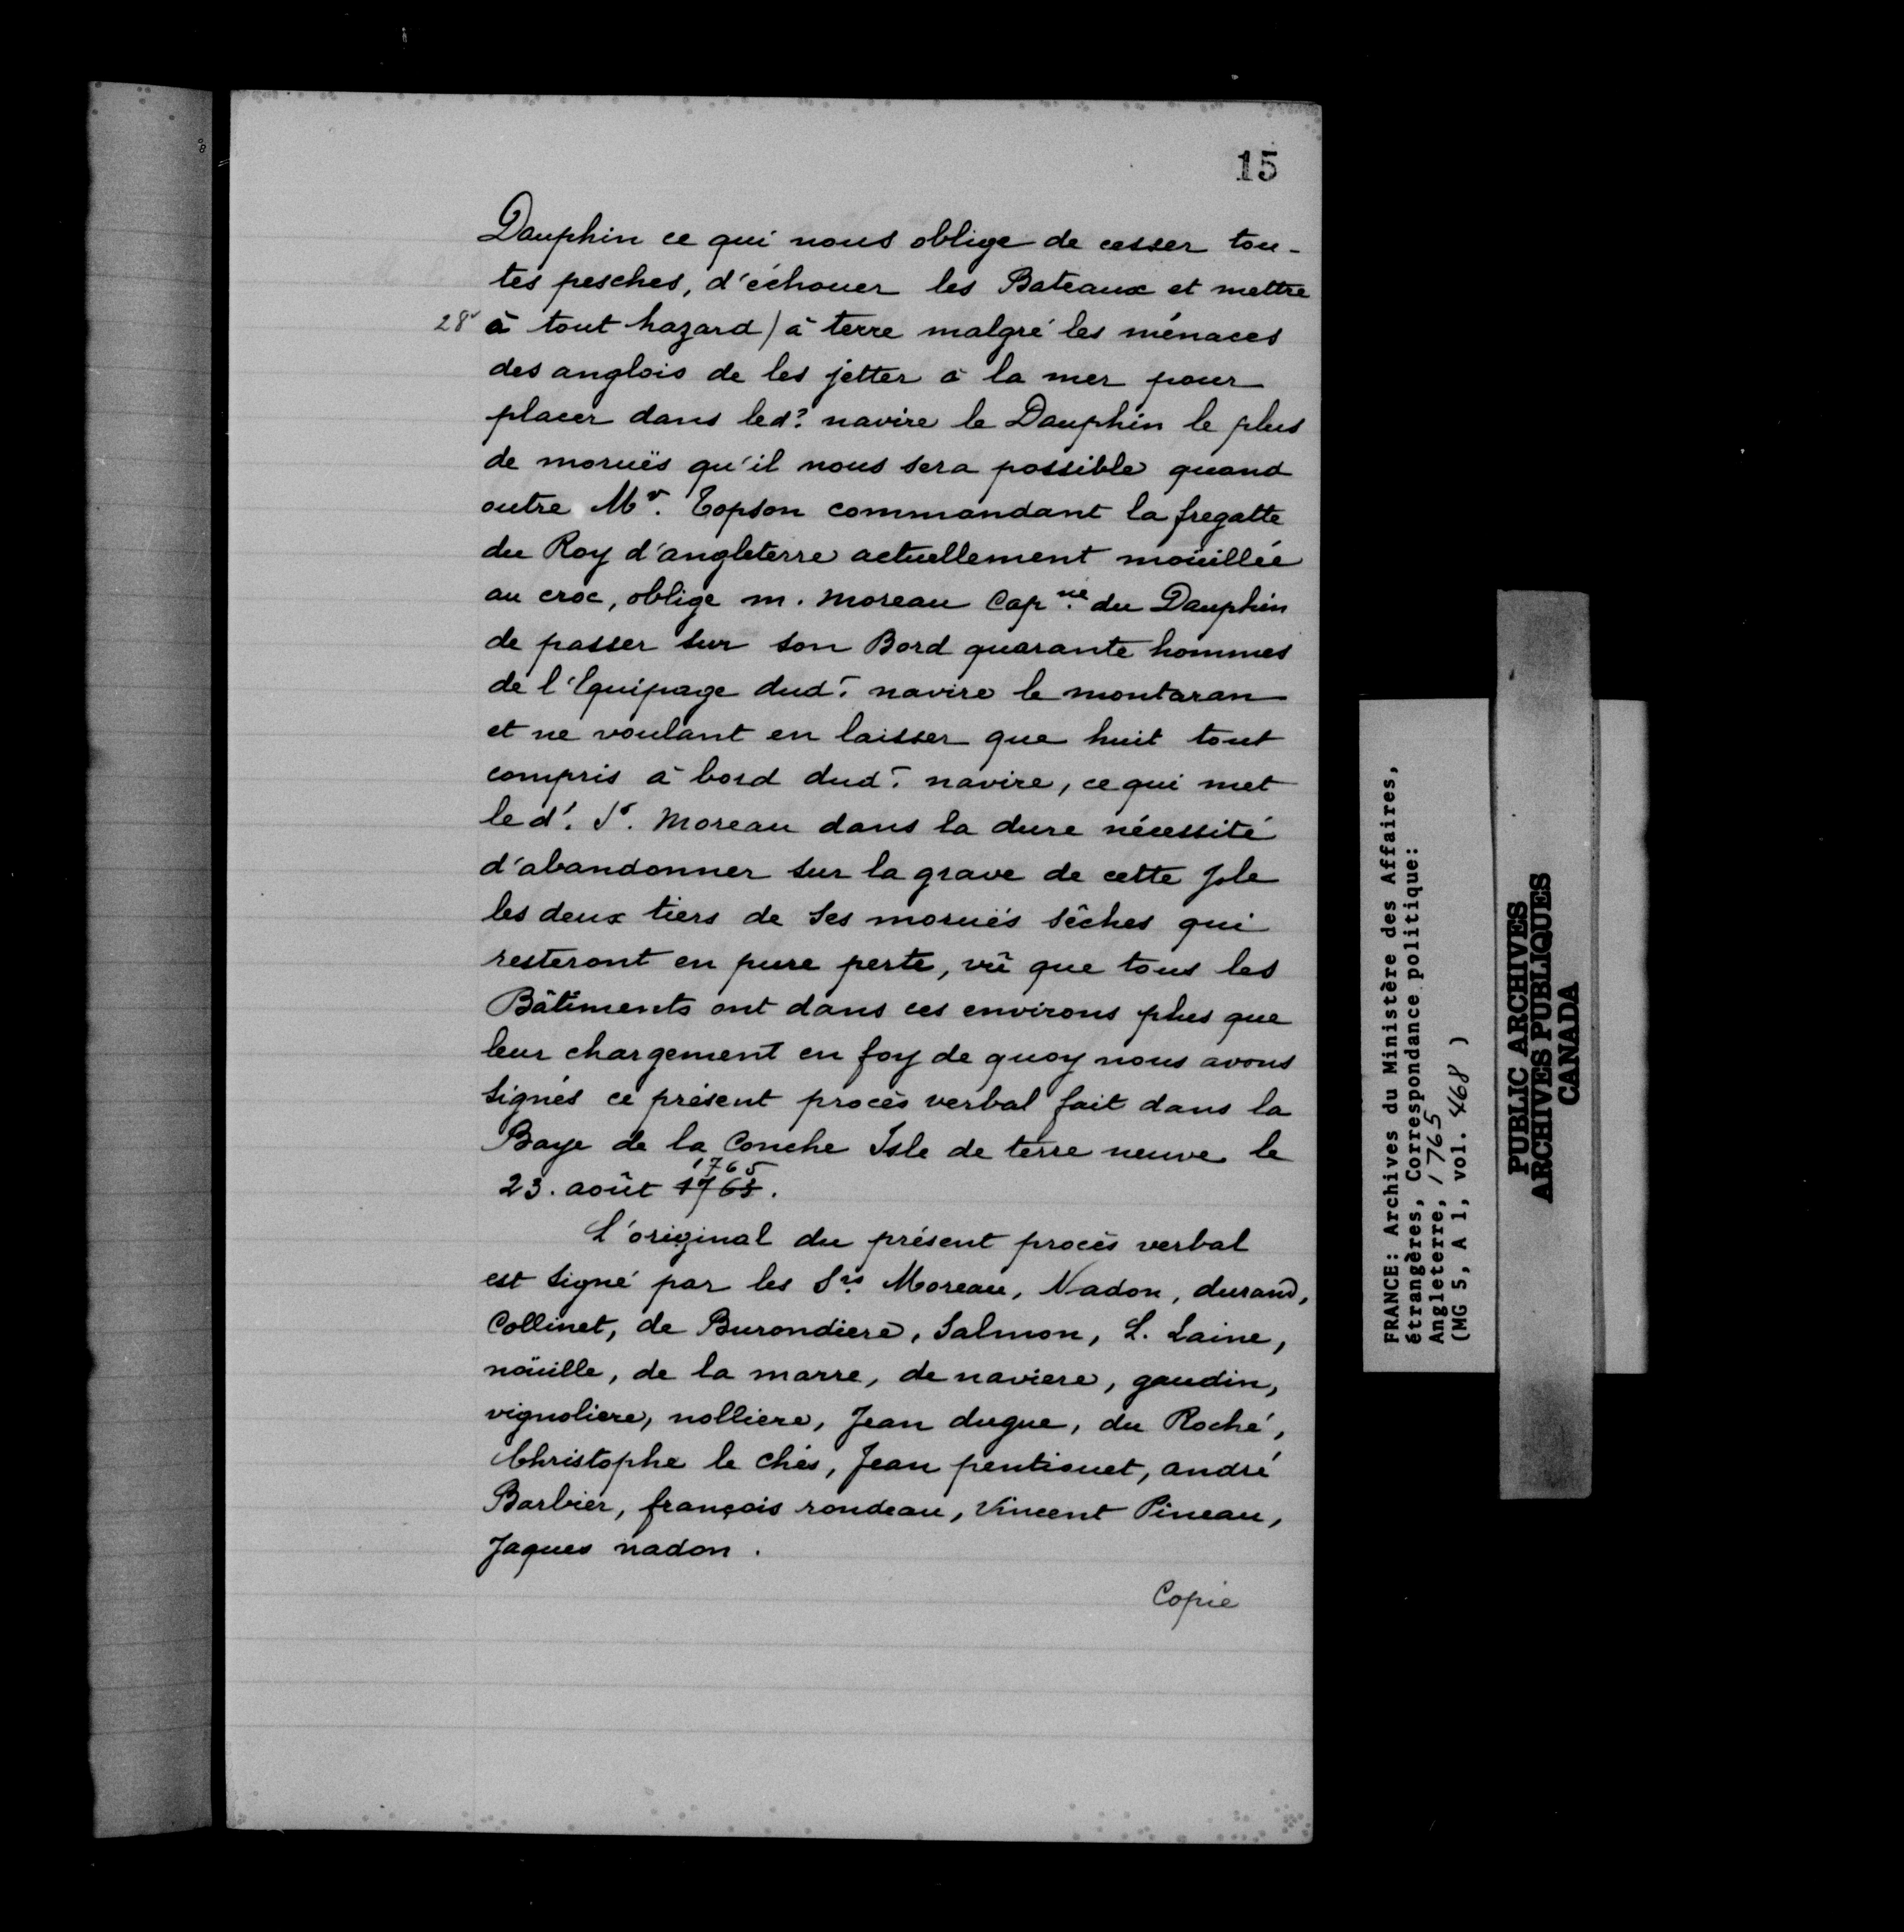 15
Dauphin ce qui nous oblige de cesser tou-
tes pesches, d'échouer les Bateaux et mettre
28v à tout hazard) à terre malgré les ménaces
des anglois de les jetter à la mer pour
placer dans led? navire le Dauphin le plus
de moruës qu'il nous sera possible quand
outre Mr. Topson commandant la fregatte
du Roy d'angleterre actuellement moüillée
au croc, oblige m. moreau Capne. du Dauphin
de passer sur son Bord quarante hommes
de l'Equipage dudt. navire le montaran
et ne voulant en laisser que huit tout
compris à bord dudt. navire, ce qui met
led'. Sr. Moreau dans la dure nécessité
d'abandonner sur la grave de cette Jsle
les deux tiers de ses moruës sêches qui
resteront en pure perte, vû que tous les
Bâtiments ont dans ces environs plus que
leur chargement en foy de quoy nous avons
signés ce présent procès verbal fait dans la
Baye de la Conche Isle de terre neuve le
1765
23. août 1765.
L'original du présent procès verbal
est signé par les Srs. Moreau, Nadon, durand,
Collinet, de Burondiere, Salmon, L. Laine,
noüille, de la marre, de naviere, gaudin,
vignoliere, nolliere, Jean dugue, du Roché,
Christophe le chés, Jean pentiouet, andré
Barbier, françois rondeau, Vincent Pineau,
Jaques nadon.
Copie
FRANCE: Archives du Ministère des Affaires,
étrangères, Correspondance politique:
Angleterre, 1765
(MG 5, A 1, vol. 468 )
PUBLIC ARCHIVES
ARCHIVES PUBLIQUES
CANADA